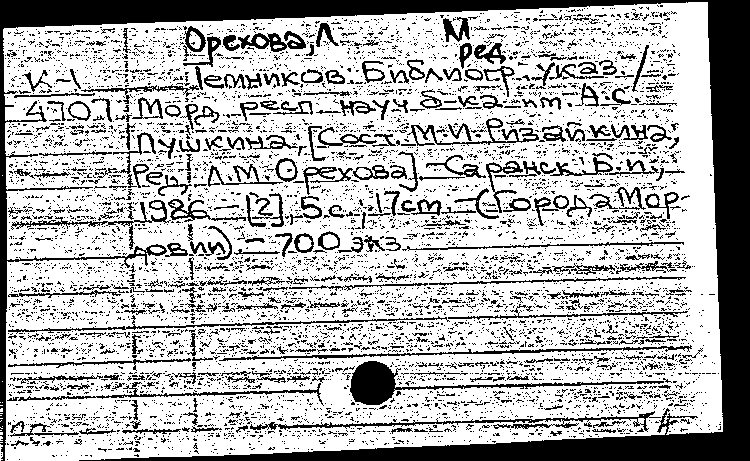 Орехова, Л М
ред.
К-1 Темников: Библиогр. указ. /
4707 Морд. респ. науч. б-ка им. А.С.
Пушкина; [Сост. М.И. Ризайкина;
Ред. Л.М. Орехова]. - Саранск: Б.и.,
1986 - [2], 5 с.; 17 см. - (Города Мор-
довии) - 700 экз.